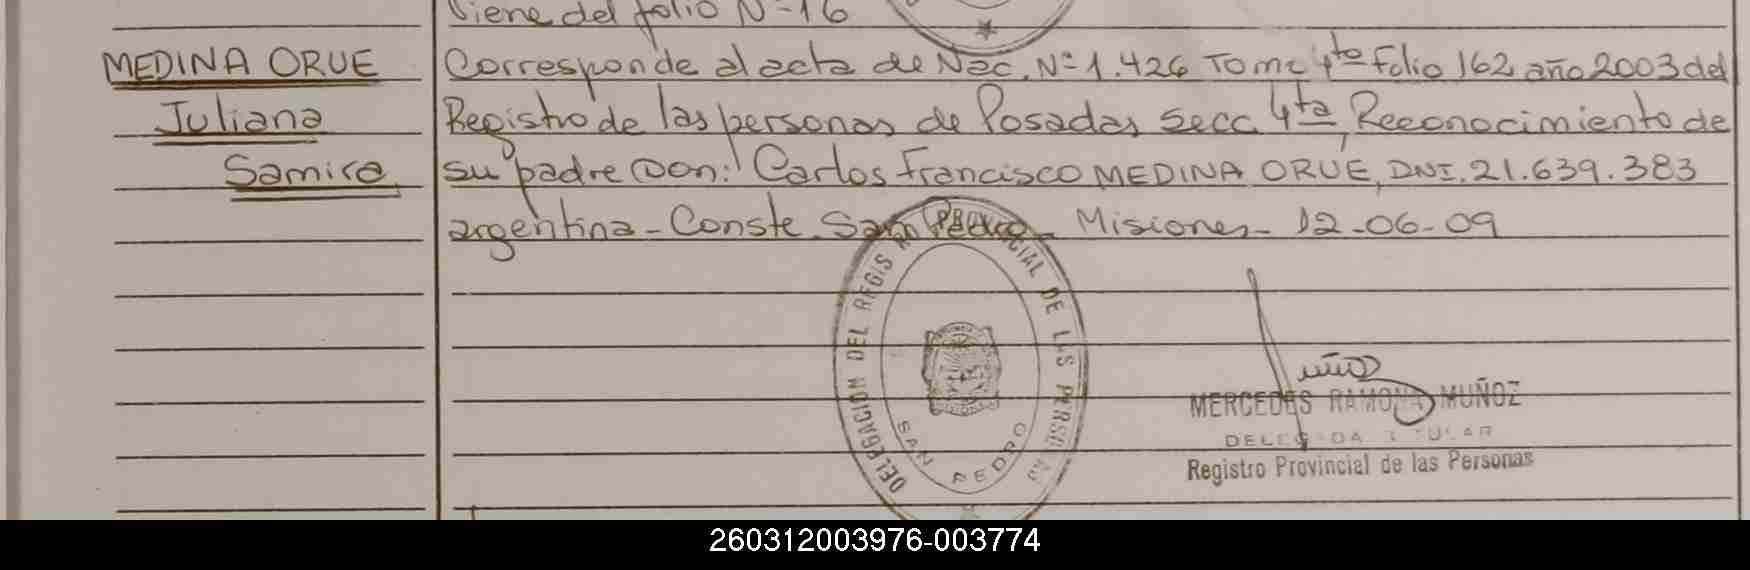 Viene del folio Nº 16
MEDINA ORUE
Juliana
Samira
Corresponde al acta de Nac. Nº 1.426 Tomo 4to Folio 162 año 2003 del
Registro de las personas de Posadas Secc. 4ta, Reconocimiento de
su padre Don: Carlos Francisco MEDINA ORUE, DNI. 21.639.383
argentina - Conste. San Pedro - Misiones - 12-06-09
DELEGACION DEL REGISTRO PROVINCIAL DE LAS PERSONAS
SAN PEDRO
Muñoz
MERCEDES RAMONA MUÑOZ
DELEGADA TITULAR
Registro Provincial de las Personas
260312003976-003774